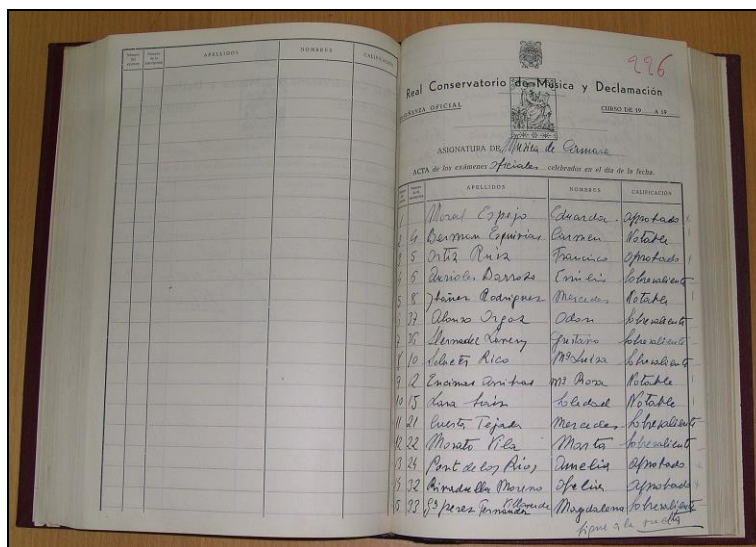 APELLIDOS NOMBRES CALIFICACIÓN
226
Real Conservatorio de Música y Declamación
ENSEÑANZA OFICIAL CURSO DE 19 A 19
ASIGNATURA DE Música de Cámara
ACTA de los exámenes oficiales celebrados en el día de la fecha.
APELLIDOS NOMBRES CALIFICACIÓN
1 Moral Espejo Eduarda Aprobado
2 4 Esquivias Carmen Notable
3 5 Ortiz Ruiz Francisco Aprobado
4 6 Barroso Emilio Sobresaliente
5 8 Ibáñez Rodriguez Mercedes Notable
6 37 Alonso Orgaz Odon Sobresaliente
7 Gustavo Sobresaliente
8 10 Rico Mª Luisa Sobresaliente
9 2 Encinas Arribas Mª Rosa Notable
10 15 Lara Saiz Soledad Notable
11 21 Cuesta Tejada Mercedes Sobresaliente
12 22 Morato Vila Marta Sobresaliente
13 24 Pont de los Rios Amelia Aprobado
32 Rivadulla Moreno Ofelia Aprobado
33 Gª perez Fernandez Villaverde Magdalena Sobresaliente
sigue a la vuelta